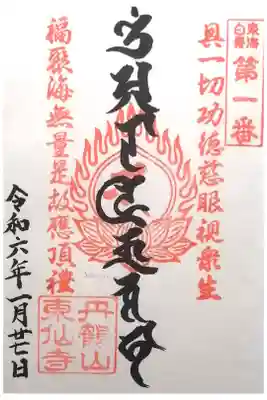 東海
白壽
第一番
具一切功徳慈眼視衆生
福聚海無量是故應頂禮
令和六年一月廿七日
丹鶴山
東仙寺